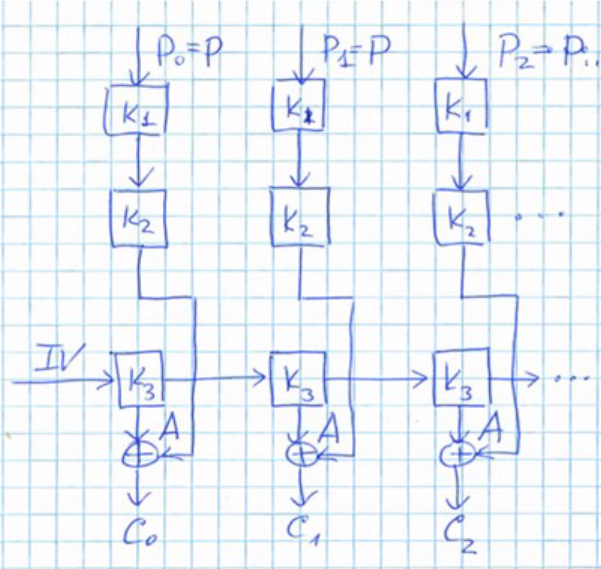 P₀=P P₁=P P₂=P..
K₁ K₁ K₁
K₂ K₂ K₂ ...
IV K₃ K₃ K₃ ...
A A A
C₀ C₁ C₂